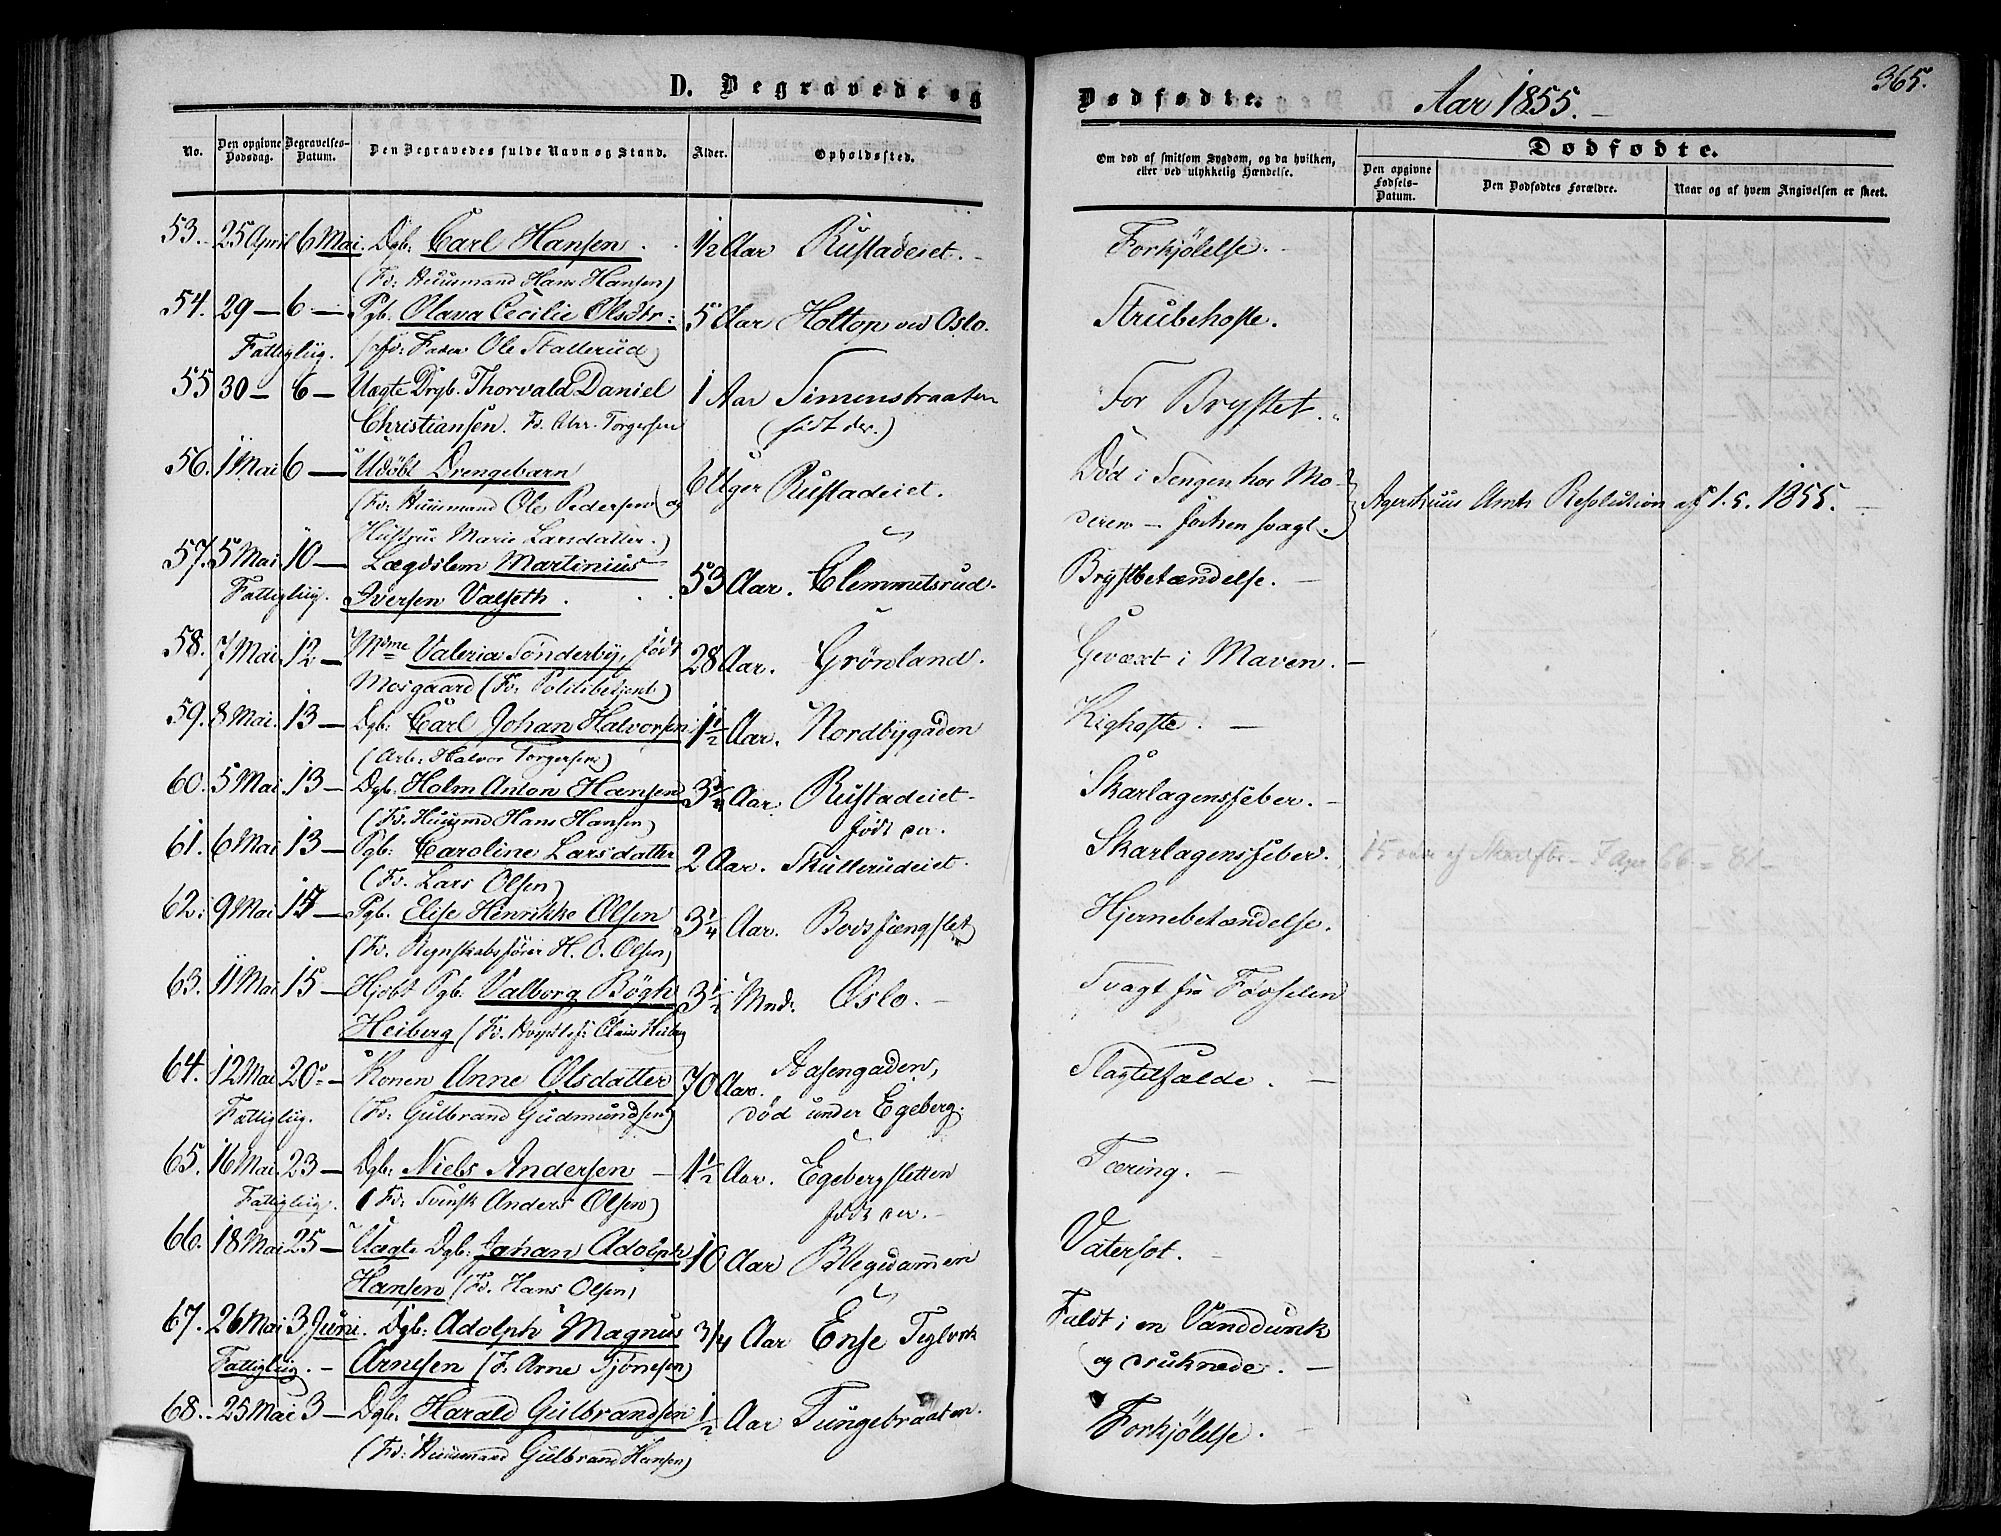 D. Begravede og
Dødfødte.
Aar 1855.
365.
No.
Den opgivne Dødsdag.
Begravelses-Datum.
Den Begravedes fulde Navn og Stand.
Alder.
Opholdssted.
Om død af smitsom Sygdom, og da hvilken, eller ved ulykkelig Hændelse.
Dødfødte.
Den opgivne Fødsels-Datum.
Den Dødfødtes Forældre.
Naar og af hvem Angivelsen er skeet.
53. 25 April 6 Mai. Dgb. Carl Hansen. 1/2 Aar Rustadeiet. Forkjølelse.
(Fd: Huusmand Hans Hansen)
54. 29 — 6 — Pgb. Olava Cecilie Olsdtr: 5 Aar Holtop ved Oslo. Strubehoste.
Fattiglig. (Fd: Fader Ole Stallerud)
55 30 — 6 — Uægte Drgb. Thorvald Daniel 1 Aar Simenstraaten For Brystet.
Christiansen. Fd. Chr. Torgersen (født der.)
56. 1 Mai 6 — Udøbt Drengebarn 6 Uger Rustadeiet. Død i Sengen hos Mo-
(Fd: Huusmand Ole Pedersen og deren — svagt. Agershuus Amts Resolution af 1. 5. 1855.
Hustrue Marie Larsdatter.)
57. 5 Mai 10 — Lægdslem Martinius 53 Aar. Clemmetsrud. Brystbetændelse.
Fattiglig. Iversen Valseth.
58. 7 Mai 12 — Mdme Valeria Sønderby, født 28 Aar. Grønland. Gevæxt i Maven.
Mosgaard (Fd: Politibetjent)
59. 8 Mai. 13 — Dgb: Carl Johan Halvorsen 1 1/2 Aar. Nordbygaden Kighoste.
(Arb: Halvor Torgersen)
60. 5 Mai 13 — Dgb: Holm Anton Hansen 3 1/4 Aar Rustadeiet Skarlagensfeber.
(Fd. Huusmd Hans Hansen) født der.
61. 6 Mai 13 — Pgb: Caroline Larsdatter 2 Aar. Skullerudeiet. Skarlagensfeber.
(Fd. Lars Olsen)
62. 9 Mai 15 — Pgb. Elise Henrikke Olsen 3 1/4 Aar. Bodsfængslet Hjernebetændelse.
(Fd. Regnskabsfører H. O. Olsen)
63. 11 Mai 15 — Hjdbt Pgb. Valborg Bøgh 3 1/2 Mnd: Oslo. Svagt fra Fødselen
Heiberg (Fd.
64. 12 Mai 20 — Konen Anne Olsdatter 70 Aar. Aasengaden, Slagtilfælde.
Fattiglig. (Fd: Gulbrand Gudmundsen) død under Egeberg.
65. 16 Mai 23 — Dgb: Niels Andersen 1 1/2 Aar. Egebergsletten Tæring.
Fattiglig. (Fd: Svensk Anders Olsen) født der.
66. 18 Mai 25 — Uægte Dgb: Johan Adolph 10 Aar Blegdammen Vatersot.
Hansen (Fd. Hans Olsen)
67. 26 Mai 3 Juni. Dgb: Adolph Magnus 3/4 Aar Ense Teglverk Faldt i en Vanddunk
Fattiglig. — Arnesen (F. Arne Tjønesen) og druknede.
68. 25 Mai 3 — Dgb. Harald Gulbrandsen 1/2 Aar Tungebraaten. Forkjølelse.
(Fd: Huusmand Gulbrand Hansen)